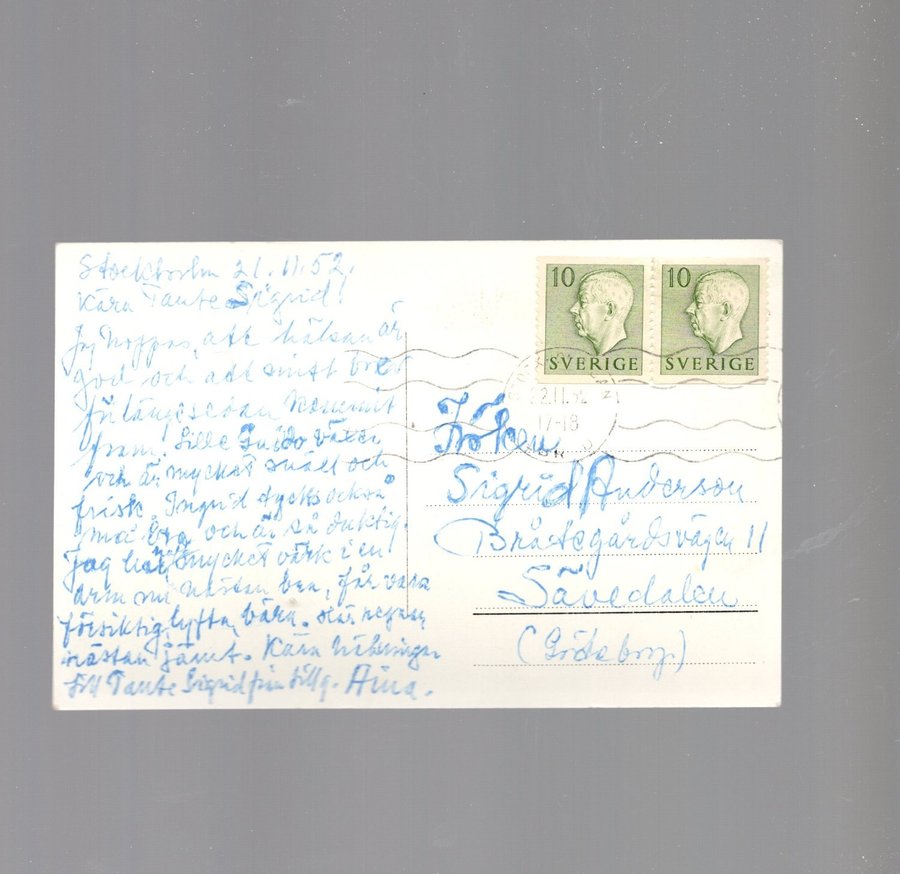 Stockholm 21.11.52.
Kära Tante Sigrid!
Jag hoppas, att hälsan är
god och att mitt brev
för länge sedan kommit
fram! Lille Guido växer
och är mycket snäll och
frisk. Ingrid tycks också
må bra och är så duktig.
Jag har mycket värk i en
arm nästan ben, får vara
försiktig lyfta, bära. Här regnar
nästan jämt. Kära hälsningar
till Tante Sigrid från tillg. Aina.
10
SVERIGE
10
SVERIGE
22.11.52
17-18
Fröken
Sigrid Anderson
Bråtegårdsvägen 11
Sävedalen
(Göteborg)